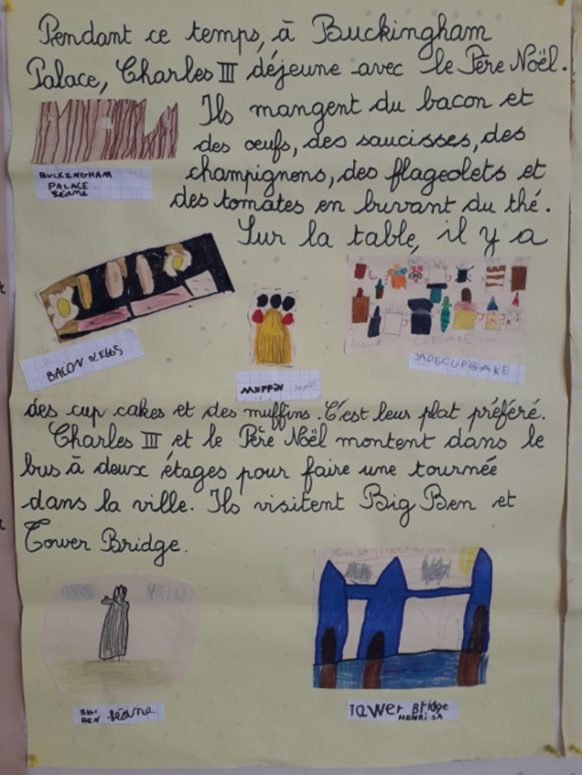 Pendant ce temps, à Buckingham
Palace, Charles III déjeune avec le Père Noël.
Ils mangent du bacon et
des œufs, des saucisses, des
champignons, des flageolets et
des tomates en buvant du thé.
BUCKINGHAM
PALACE
Séane
Sur la table, il y a
BACON & EGGS
MUFFIN
JADE CUPCAKE
des cup cakes et des muffins. C'est leur plat préféré.
Charles III et le Père Noël montent dans le
bus à deux étages pour faire une tournée
dans la ville. Ils visitent Big Ben et
Tower Bridge.
BIG
BEN Séane
Tawer Bridge
HENRI SA